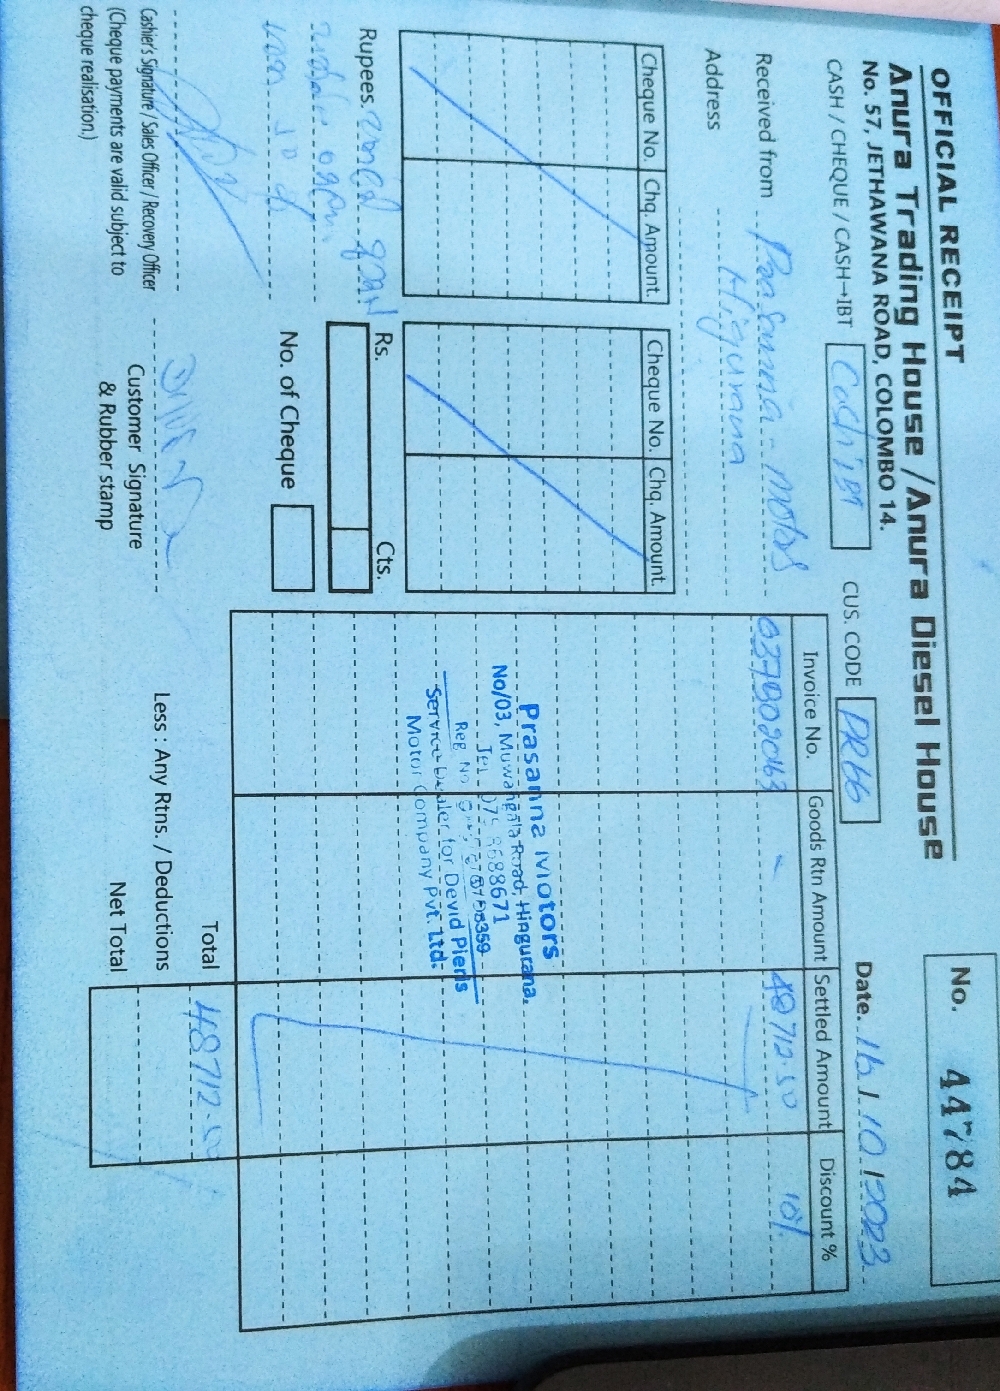 OFFICIAL RECEIPT
Anura Trading House / Anura Diesel House
No. 57, JETHAWANA ROAD, COLOMBO 14.
No. 44784
CASH / CHEQUE / CASH→IBT Cash IBT
CUS. CODE DR66
Date. 16 / 10 / 2023
Received from Prasanna - Motos
Higurana
Address
Cheque No. Chq. Amount.
Cheque No. Chq. Amount.
Rupees.
Rs. Cts.
No. of Cheque
Invoice No. Goods Rtn Amount Settled Amount Discount %
0379020163 - 48712.50 10%
Prasanna Motors
No/03, Muwangala Road, Hingurana.
Service Dealer for Devid Pieris
Motor Company Pvt. Ltd.
Total 48712.50
Less : Any Rtns. / Deductions
Net Total
Cashier's Signature / Sales Officer / Recovery Officer
(Cheque payments are valid subject to
cheque realisation.)
Customer Signature
& Rubber stamp